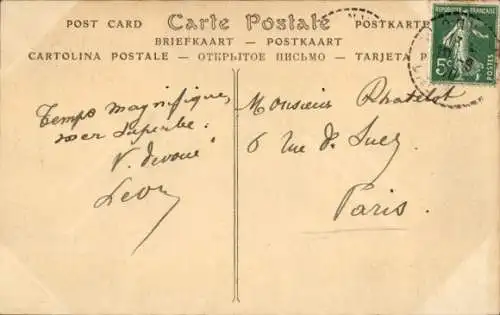 POST CARD Carte Postale POSTKARTE
BRIEFKAART — POSTKAART
CARTOLINA POSTALE — ОТКРЫТОЕ ПИСЬМО — TARJETA P
REPUBLIQUE FRANÇAISE
5c POSTES
Temps magnifique,
mer superbe.
V. dévoué
Léon
Monsieur Rhatelot
6 rue de Suez
Paris.